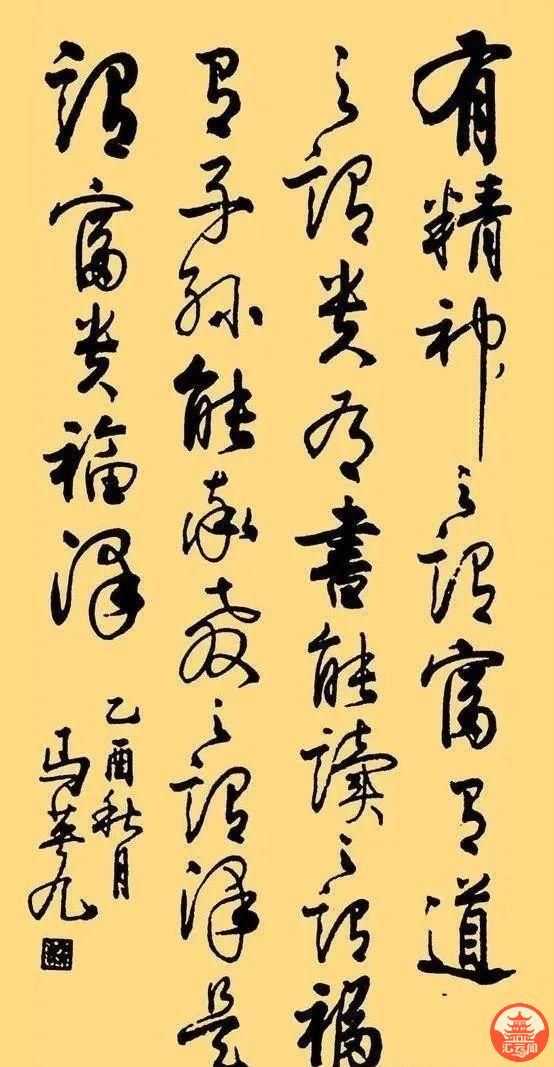 有精神之謂富有道
之謂貴有書能讀之謂福
有子孫能承教之謂澤是
謂富貴福澤
乙酉秋月
馬英九
汇云阁